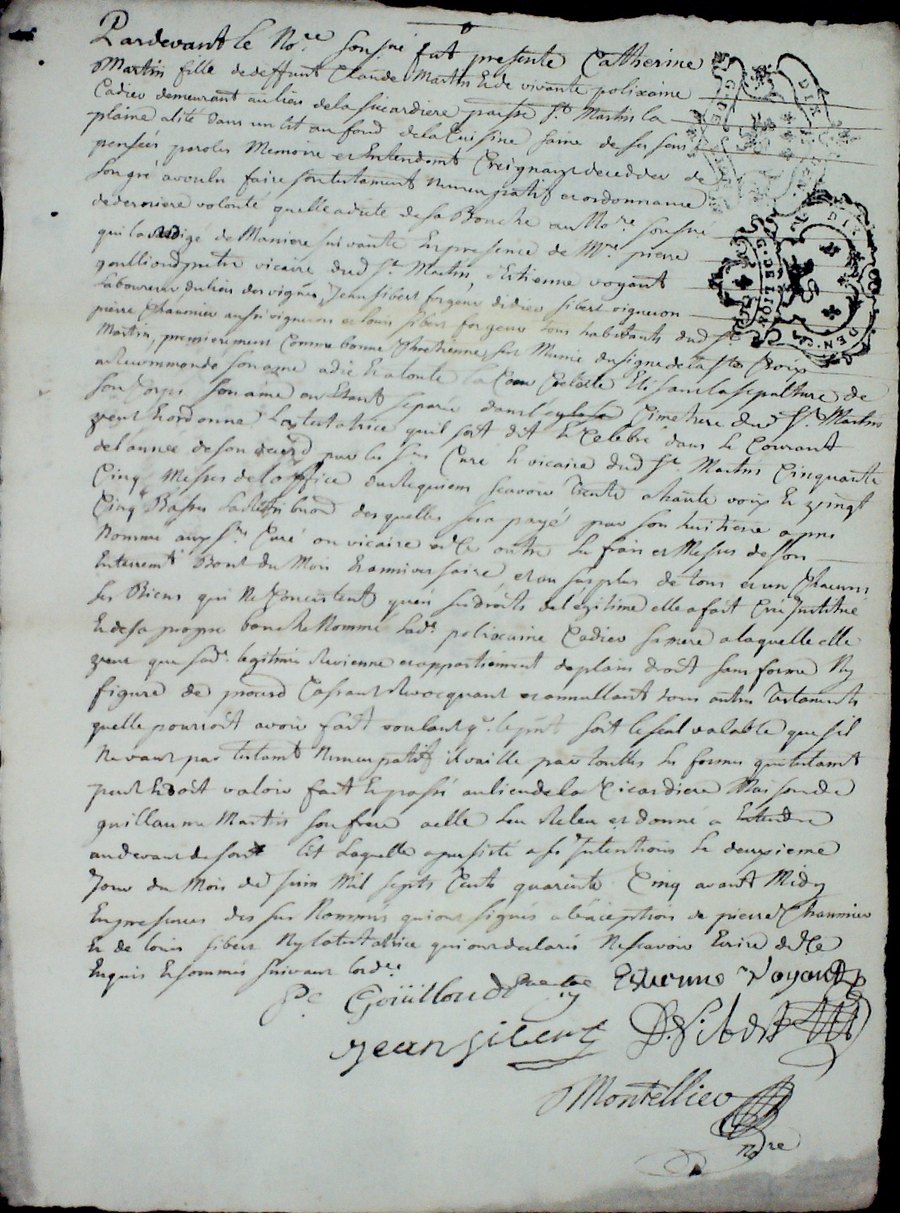 Pardevant le No.re soussné fut presente Catherine
Martin fille de deffunt Claude Martin Et de vivante polixaine
Cadieu demeurant au lieu de la sicardiere parsse St. Martin la
plaine alité dans un lit au fond de la Cuisine saine de ses sens
pensées paroles Memoire et Entendemt Creignant deceder de
son gré a voulu faire son testament nuncupatif et ordonnance
de derniere volonté quelle a dicté de sa Bouche au No.re sousné
qui la redigé de Maniere suivante En presence de Mre. pierre
goulliond pretre vicaire dud St. Martin, d'Estienne voyant
Laboureur du lieu des vignes, Jean sibert forgeur didier sibert vigneron
pierre Chaumier aussi vigneron et louis sibert forgeur tous habitants dud St
Martin, premierement Comme bonne Chretienne, s'est Munie du signe de la Ste Croix
a Recommandé son ame a dieu Et a toute la Cour Celeste Elisant la sepulture de
son Corps son ame en Etant separée dans le Cimetiere dud St. Martin
veut Et ordonne La testatrice quil soit dit Et Celebré dans le Courant
de l'année de son decéd par les srs Curé Et vicaire dud St. Martin Cinquante
Cinq Messes de l'office du Requiem scavoir Trente a haute voix Et vingt
Cinq Basses La Retribuõn desquelles sera payé par son heritiere apres
Nommé aux srs Curé ou vicaire et Ce outre les frais et Messes de son
Enterremt Bout du Mois Et anniversaire, et au surplus de tous et un Chacuns
ses Biens qui Ne Concistent quen ses droits de legitime elle a fait Crée Institué
Et de sa propre bouche Nommé Lade. polixaine Cadieu sa mere a laquelle elle
veut que sade. legitime Revienne et appartiennent de plain droit sans forme Ny
figure de procéd Cassant Revocquant et annullant tous autres Testaments
quelle pourroit avoir fait voulant q. le pnt soit le seul valable que sil
Ne vaut par testamt Nuncupatif il vaille par touttes les formes que testamt
peut Et doit valoir fait Et passé au lieu de la Cicardiere Maison de
guillaume Martin son frere a elle Leu Releu et donné a Entendre
au devant de son lit Laquelle a persisté a ses Intentions le deuxieme
Jour du Mois de juin Mil septs Cents quarente Cinq avant Midy
En presences des sus Nommés qui ont signés a l'exception de pierre Chaumier
Et de louis sibert Ny la testatrice qui ont declarés Ne scavoir Ecrire de Ce
Enquis Et sommés suivant lorde.
Goüilloud Estienne Voyant
Jean Sibert D. Sibert
Montellier
no.re